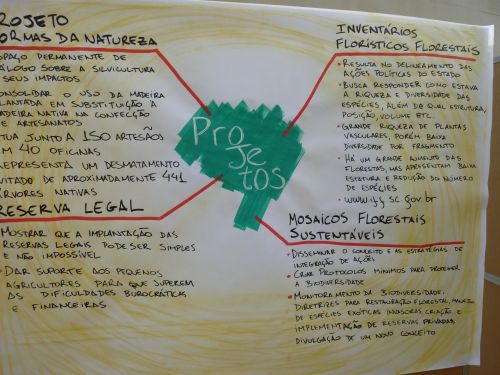 ROJETO
ORMAS DA NATUREZA
SPAÇO PERMANENTE DE
ÁLOGO SOBRE A SILVICULTURA
SEUS IMPACTOS
ONSOLIDAR O USO DA MADEIRA
LANTADA EM SUBSTITUIÇÃO À
ADEIRA NATIVA NA CONFECÇÃO
E ARTESANATOS
TUA JUNTO A 150 ARTESÃOS
EM 40 OFICINAS
EPRESENTA UM DESMATAMENTO
VITADO DE APROXIMADAMENTE 441
RVORES NATIVAS
RESERVA LEGAL
MOSTRAR QUE A IMPLANTAÇÃO DAS
RESERVAS LEGAIS PODE SER SIMPLES
E NÃO IMPOSSÍVEL
• DAR SUPORTE AOS PEQUENOS
AGRICULTORES PARA QUE SUPEREM
AS DIFICULDADES BUROCRÁTICAS
E FINANCEIRAS
Pro
je
tos
INVENTÁRIOS
FLORÍSTICOS FLORESTAIS
• RESULTA NO DELINEAMENTO DAS
AÇÕES POLÍTICAS DO ESTADO
• BUSCA RESPONDER COMO ESTAVA
A RIQUEZA E DIVERSIDADE DAS
ESPÉCIES, ALÉM DE QUAL ESTRUTURA,
POSIÇÃO, VOLUME ETC.
• GRANDE RIQUEZA DE PLANTAS
VASCULARES, PORÉM BAIXA
DIVERSIDADE POR FRAGMENTO
• HÁ UM GRANDE AUMENTO DAS
FLORESTAS, MAS APRESENTAM BAIXA
ESTATURA E REDUÇÃO DO NÚMERO
DE ESPÉCIES
• www.iff.sc.gov.br
MOSAICOS FLORESTAIS
SUSTENTÁVEIS
• DISSEMINAR O CONCEITO E AS ESTRATÉGIAS DE
INTEGRAÇÃO DE AÇÕES
• CRIAR PROTOCOLOS MÍNIMOS PARA PROTEGER
A BIODIVERSIDADE
• MONITORAMENTO DA BIODIVERSIDADE,
DIRETRIZES PARA RESTAURAÇÃO FLORESTAL, MANEJO
DE ESPÉCIES EXÓTICAS INVASORAS, CRIAÇÃO E
IMPLEMENTAÇÃO DE RESERVAS PRIVADAS,
DIVULGAÇÃO DE UM NOVO CONCEITO